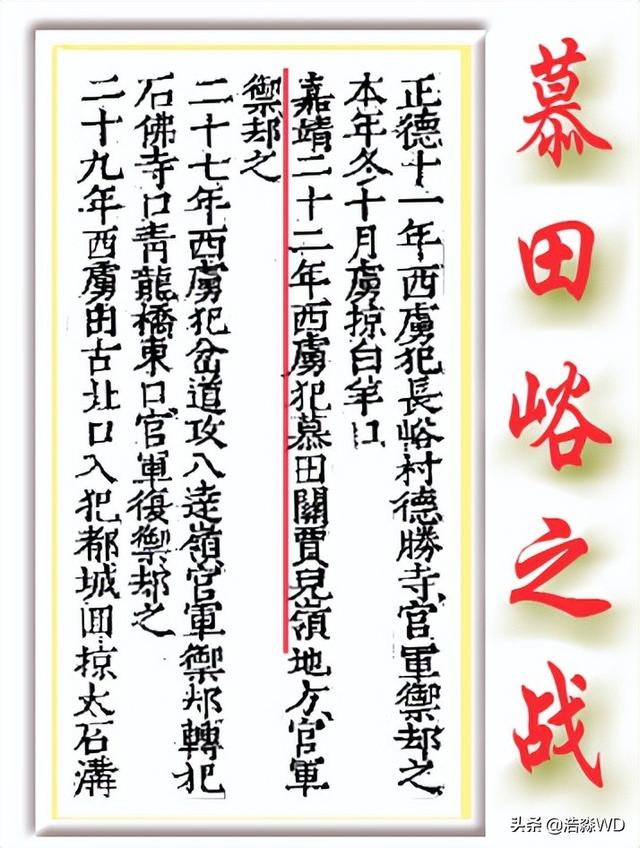 慕田峪之战
正德十一年西虜犯長峪村德勝寺官軍禦却之
本年冬十月虜掠白羊口
嘉靖二十二年西虜犯慕田關賈兒嶺地方官軍
禦却之
二十七年西虜犯岔道攻八逹嶺官軍禦却轉犯
石佛寺口青龍橋東口官軍復禦却之
二十九年西虜由古北口入犯都城囬掠大石溝
头条 @浩淼WD